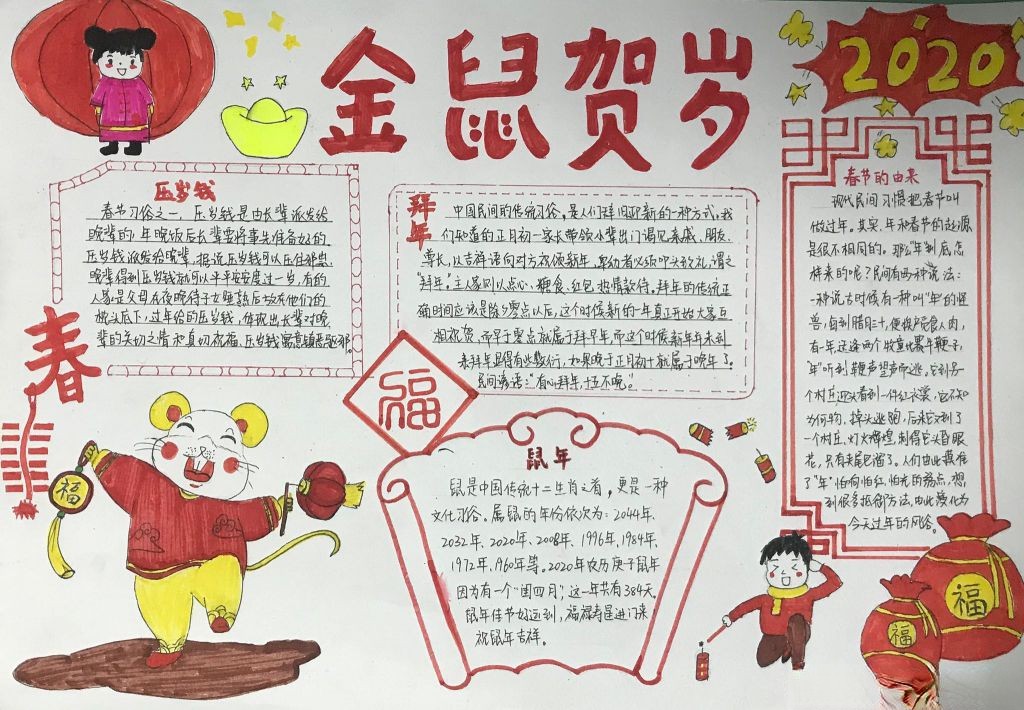 金鼠贺岁
2020
压岁钱
春节习俗之一，压岁钱是由长辈派发给
晚辈的，年晚饭后长辈要将事先准备好的
压岁钱派发给晚辈，据说压岁钱可以压住邪祟，
晚辈得到压岁钱就可以平平安安度过一岁，有的
人家是父母在夜晚待子女睡熟后放在他们的
枕头底下，过年给的压岁钱，体现出长辈对晚
辈的关切之情和真切祝福，压岁钱寓意镇恶驱邪。
拜年
中国民间的传统习俗，是人们辞旧迎新的一种方式，我
们知道的正月初一家长带领小辈出门谒见亲戚、朋友、
尊长，以吉祥语向对方祝颂新年，卑幼者必须叩头致礼，谓之
"拜年"。主人家则以点心、糖食、红包热情款待。拜年的传统正
确时间应该是除夕零点以后，这个时候新的一年真正开始大家互
相祝贺，而早于零点就属于拜早年，而这个时候新年未到
来拜年显得有些敷衍，如果晚于正月初十就属于晚年了。
民间谚语："有心拜年，十五不晚"。
春节的由来
现代民间习惯把春节叫
做过年。其实，年和春节的起源
是很不相同的。那么"年"到底怎
样来的呢？民间有两种说法：
一种说古时候有一种叫"年"的怪
兽，每到腊月三十，便挨户食人肉，
有一年，
"年"听到鞭声望声而逃。它到另一
个村庄迎头看到一件红衣裳，它不知
为何物，掉头逃跑，后来它又到了
一个村庄，灯火辉煌，刺得它头昏眼
花，只有夹尾巴溜了。人们由此摸准了
"年"怕响怕红，怕光的弱点，想
到很多抵御方法，由此演化为
今天过年的风俗。
春
福
福
鼠年
鼠是中国传统十二生肖之首，更是一种
文化习俗。属鼠的年份依次为：2044年、
2032年、2020年、2008年、1996年、1984年、
1972年、1960年等。2020年农历庚子鼠年
因为有一个"闰四月"，这一年共有384天，
鼠年佳节好运到，福禄寿星进门来
祝鼠年吉祥。
福
福